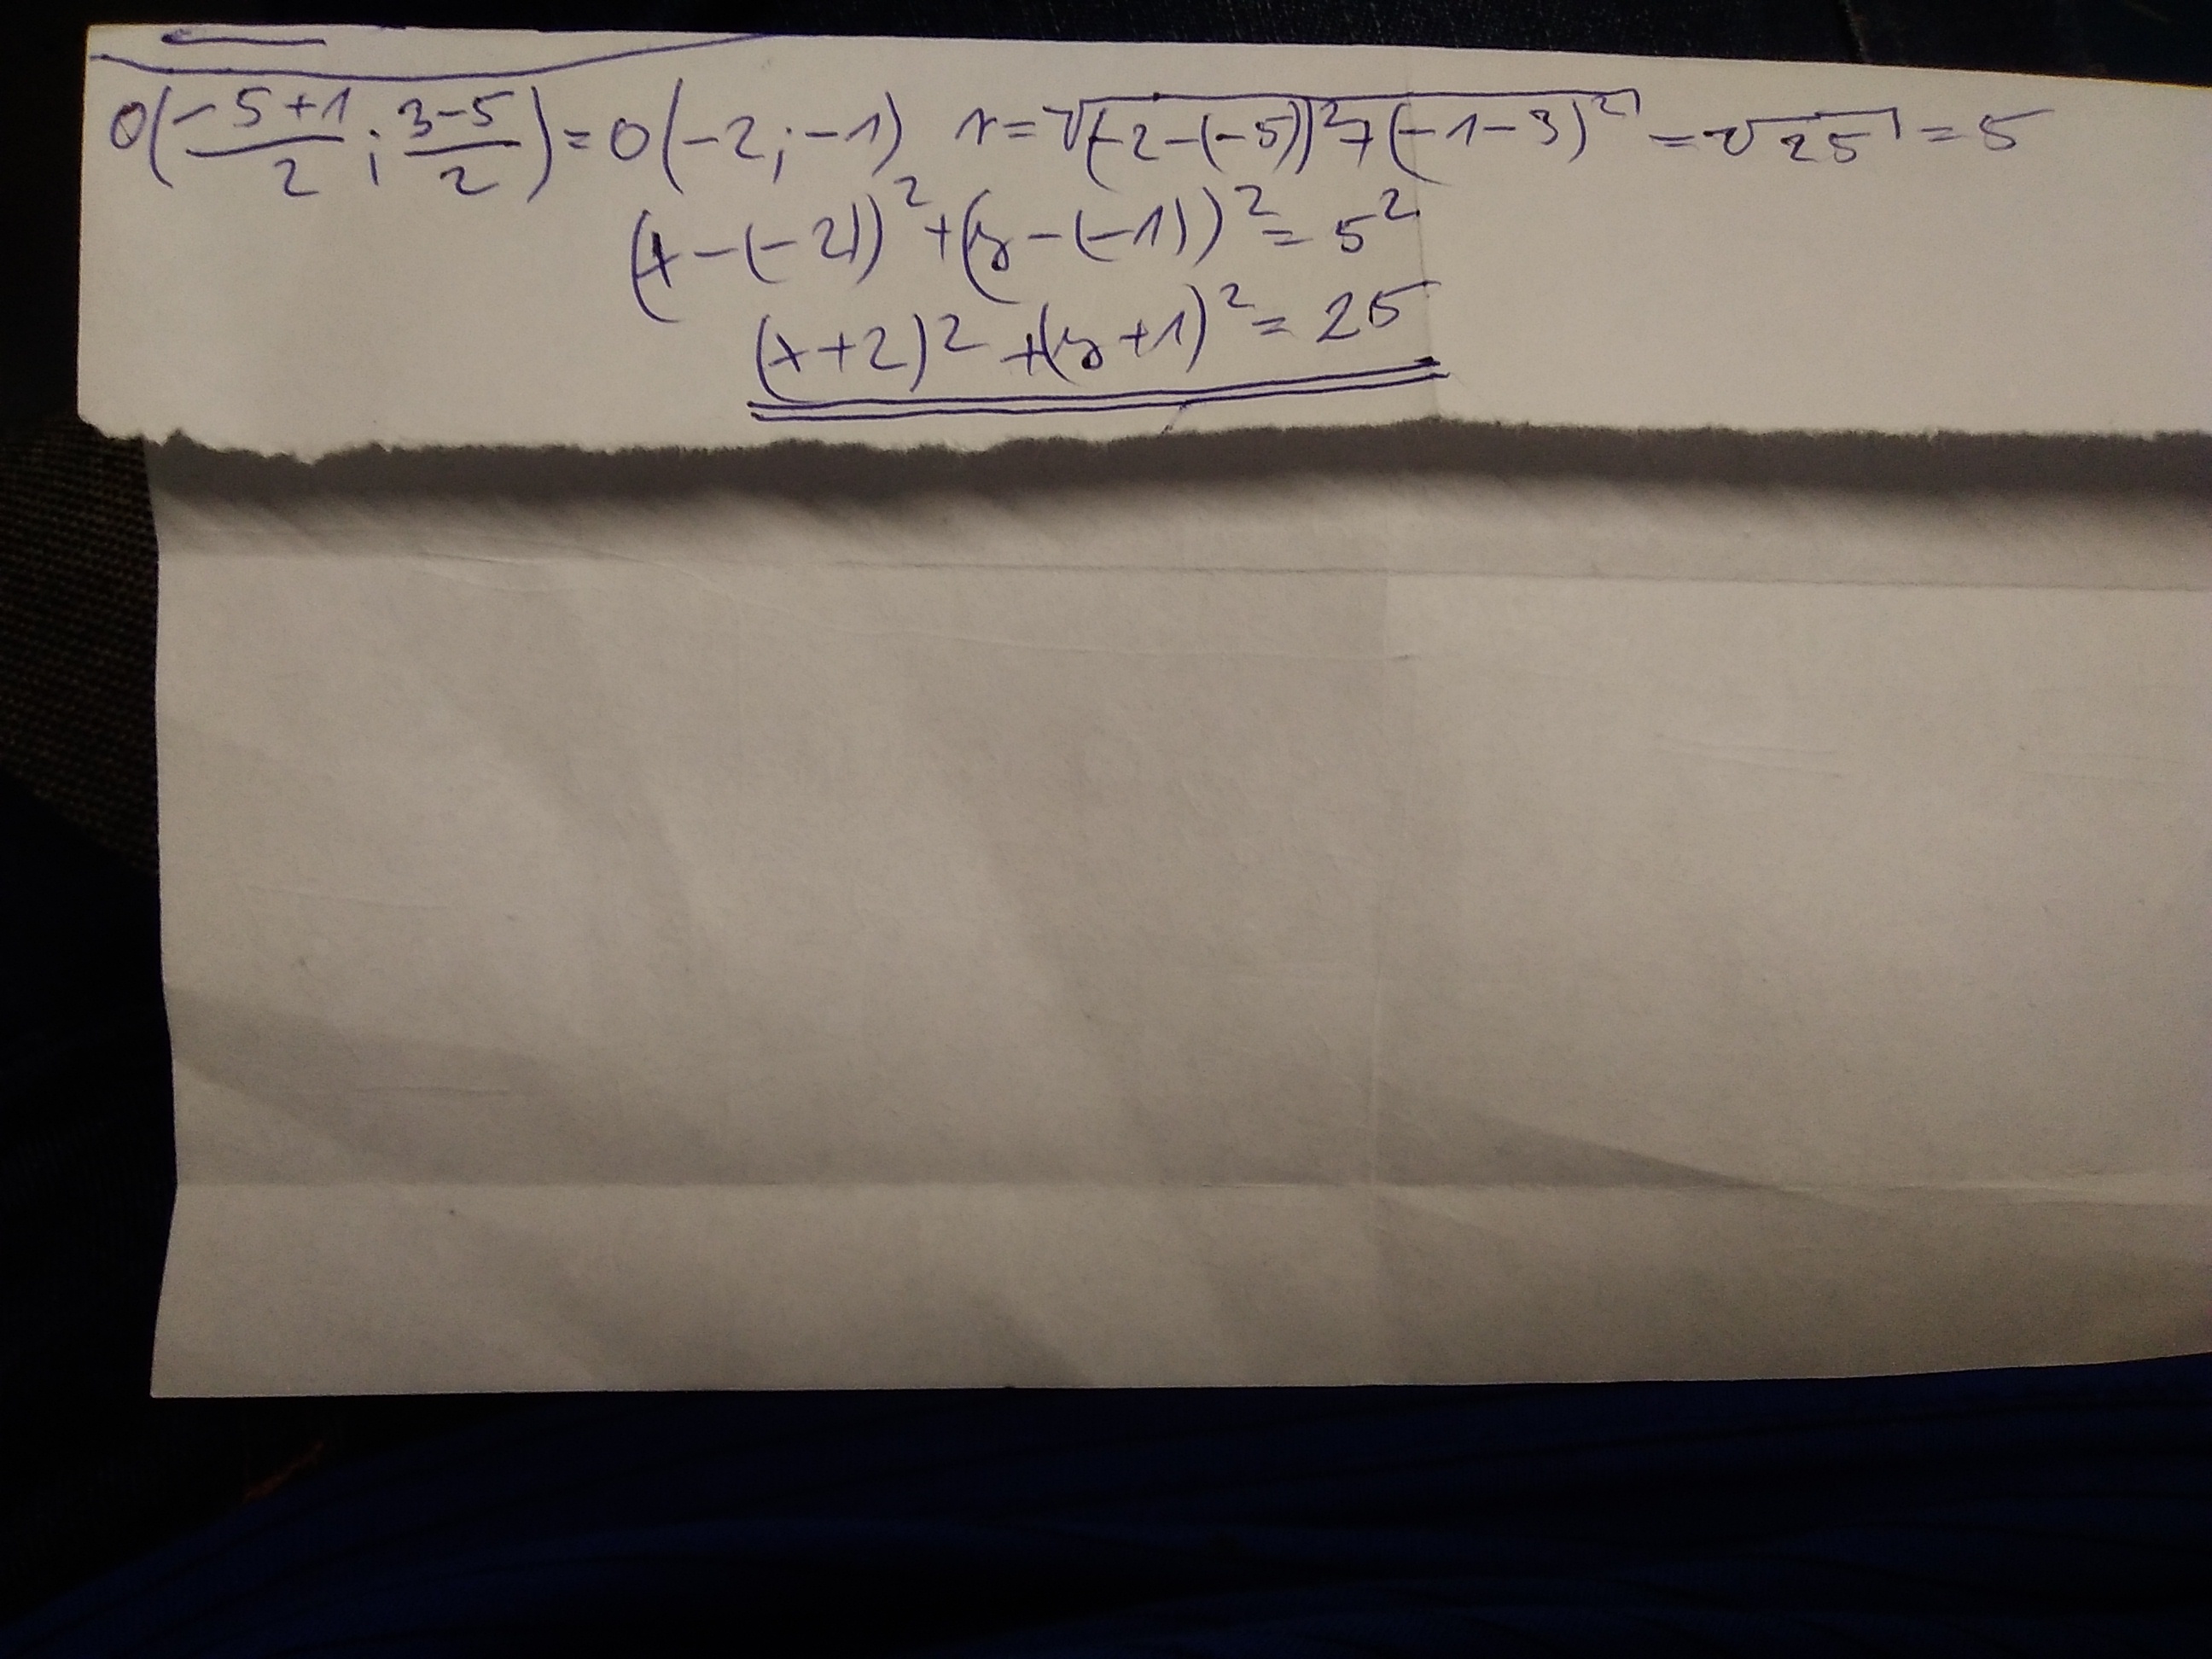 O(-5+1/2 ; 3-5/2) = O(-2 ; -1) r = √(-2-(-5))²+(-1-3)² = √25 = 5
(x-(-2))²+(y-(-1))² = 5²
(x+2)²+(y+1)² = 25